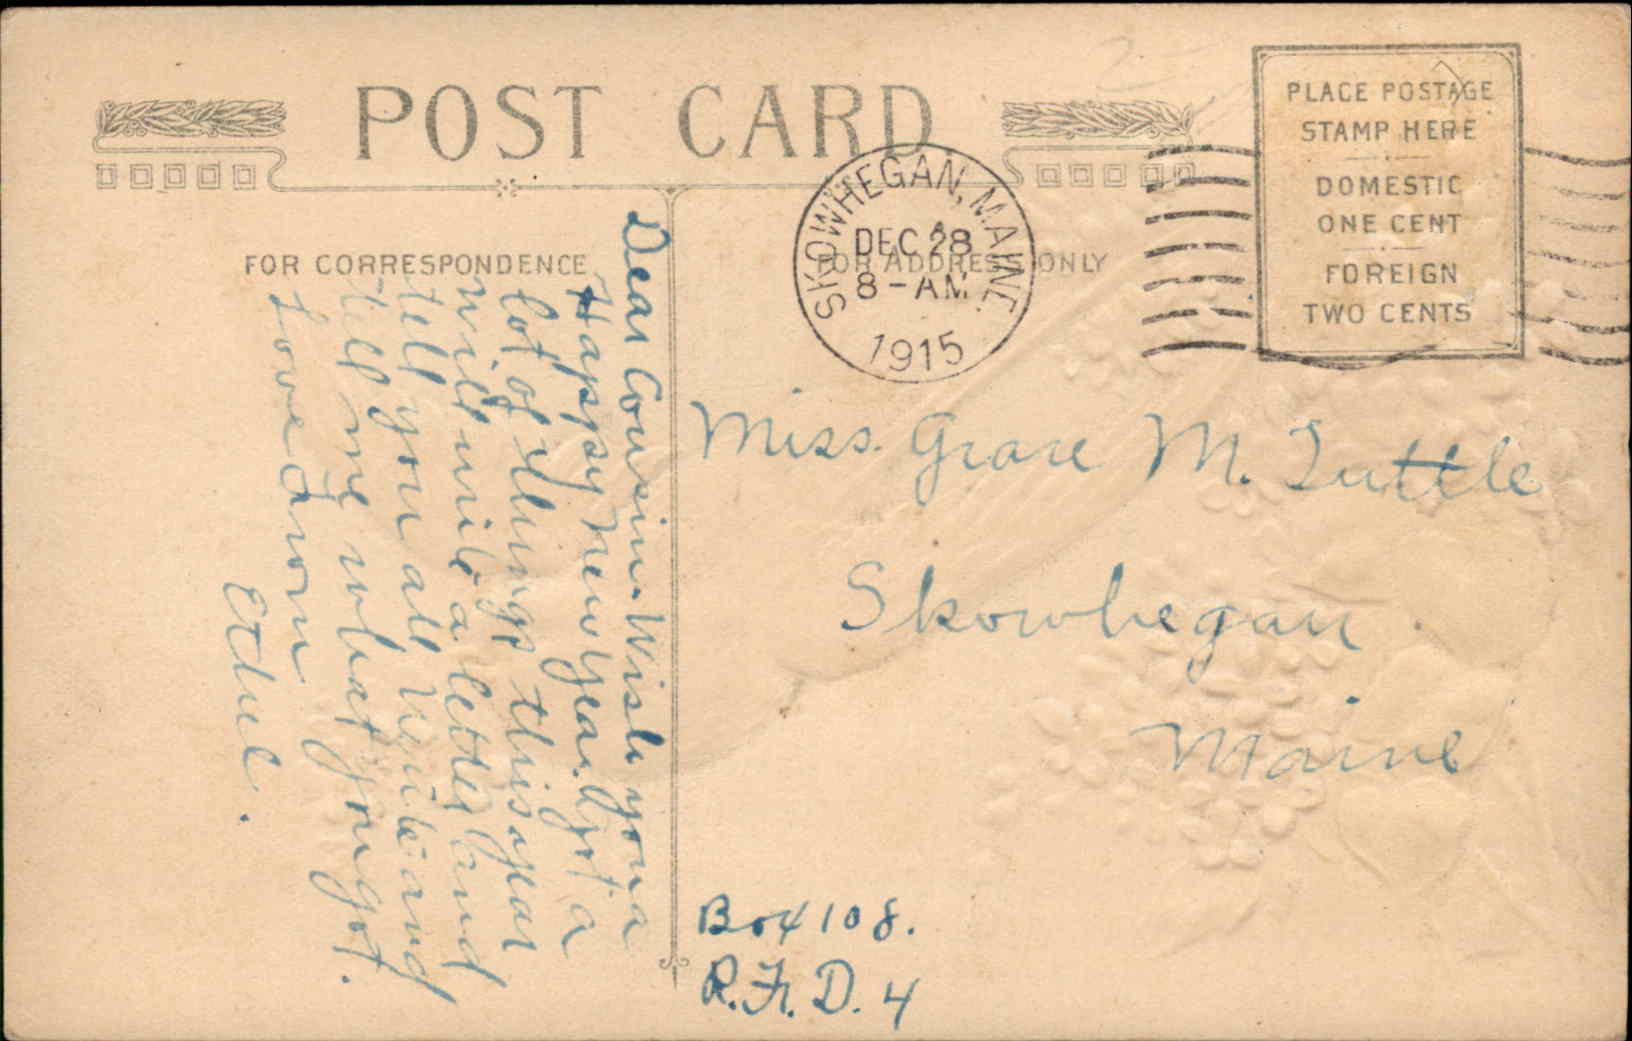 POST CARD
PLACE POSTAGE
STAMP HERE
DOMESTIC
ONE CENT
FOREIGN
TWO CENTS
SKOWHEGAN, MAINE
DEC 28
8 - AM
1915
FOR CORRESPONDENCE
FOR ADDRESS ONLY
Dear Cousin. Wish you a
Happy New Year. Got a
lot of things this year
will write a letter and
tell you all write and
tell me what you got.
Love from
Ethel.
Miss. Grace M. Tuttle
Skowhegan
Maine
Box 108.
R.F.D. 4